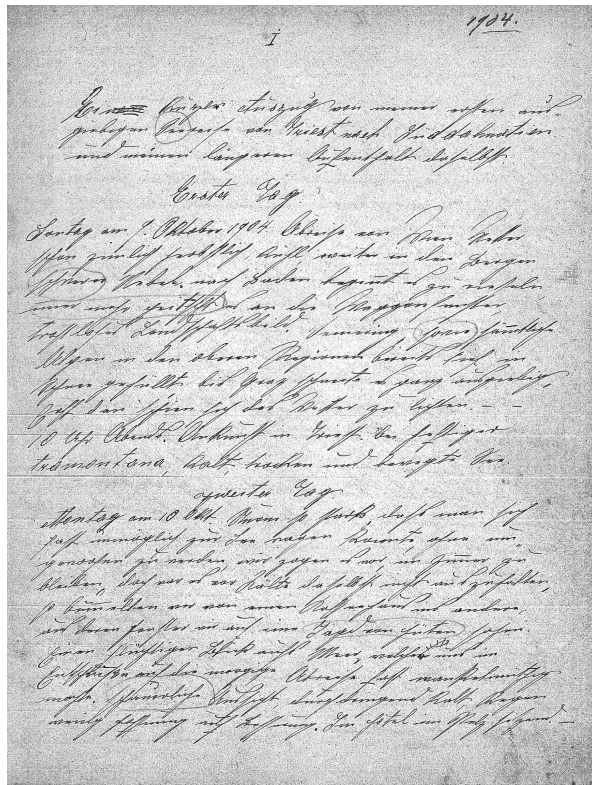 1904.
I
Ein kurzer Auszug von meiner ersten aus-
giebigen Seereise von Triest nach Süddalmatien
und meinen längeren Aufenthalt daselbst
Erster Tag
Sontag am 9. Oktober 1904. Abreise von Wien Wetter
schon zimlich herbstlich, kühl, weiter in den Bergen
schwere Nebel, nach Baden beginnt es zu rieseln
immer mehr peitscht es an die Waggonfenster,
trostloses Landschaftsbild, Semering sowie sämtliche
Alpen in den oberen Regionen bereits tief in
Schnee gehüllt bis Graz schneite es ganz ausgiebig,
Erst dan schien sich das Wetter zu lichten. – –
10 Uhr Abends. Ankunft in Triest bei heftiger
tramontana, kalt, trocken und bewegte See
zweiter Tag
Montag am 10 Okt. Sturm so stark, dass man sich
fast unmöglich zur See wagen konnte, ohne um
geworfen zu werden, wir zogen es vor, im Zimmer zu
bleiben, doch war es vor Kälte daselbst nicht auszuhalten,
so bummelten wir von einen Kaffeehaus ins andere,
aus deren Fenster wir auf eine Jagd von Hüten sahen.
Einen flüchtiger Blick aufs Meer, welcher uns in
Entschlusse auf die morgige Abreise fast wankelmütig
machte. schauerliche Aussicht, durchdringend kalt, Regen
wenig Hoffnung auf Besserung. Im Hotel im Pelz sitzend –